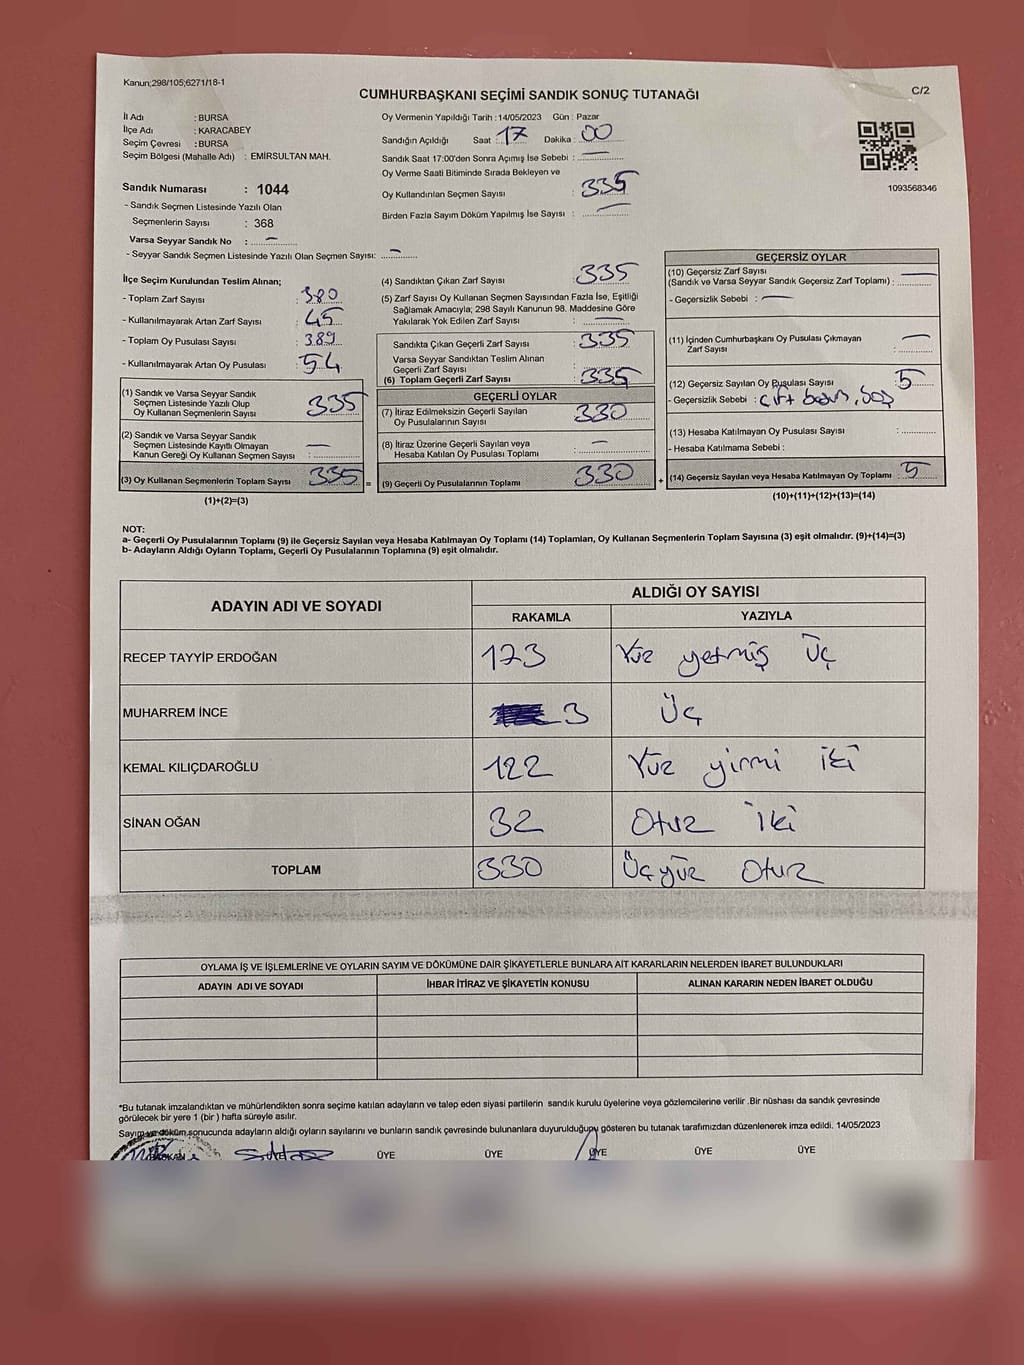 Kanun;298/105;6271/18-1
C/2
CUMHURBAŞKANI SEÇİMİ SANDIK SONUÇ TUTANAĞI
İl Adı : BURSA
İlçe Adı : KARACABEY
Seçim Çevresi : BURSA
Seçim Bölgesi (Mahalle Adı) : EMİRSULTAN MAH.
Sandık Numarası : 1044
- Sandık Seçmen Listesinde Yazılı Olan
Seçmenlerin Sayısı : 368
Varsa Seyyar Sandık No : —
- Seyyar Sandık Seçmen Listesinde Yazılı Olan Seçmen Sayısı: —
Oy Vermenin Yapıldığı Tarih : 14/05/2023 Gün : Pazar
Sandığın Açıldığı Saat : 17 Dakika : 00
Sandık Saat 17:00'den Sonra Açımış İse Sebebi : —
Oy Verme Saati Bitiminde Sırada Bekleyen ve
Oy Kullandırılan Seçmen Sayısı : 335
Birden Fazla Sayım Döküm Yapılmış İse Sayısı : —
1093568346
İlçe Seçim Kurulundan Teslim Alınan;
- Toplam Zarf Sayısı : 380
- Kullanılmayarak Artan Zarf Sayısı : 45
- Toplam Oy Pusulası Sayısı : 389
- Kullanılmayarak Artan Oy Pusulası : 54
(1) Sandık ve Varsa Seyyar Sandık
Seçmen Listesinde Yazılı Olup
Oy Kullanan Seçmenlerin Sayısı : 335
(2) Sandık ve Varsa Seyyar Sandık
Seçmen Listesinde Kayıtlı Olmayan
Kanun Gereği Oy Kullanan Seçmen Sayısı : —
(3) Oy Kullanan Seçmenlerin Toplam Sayısı : 335 =
(1)+(2)=(3)
(4) Sandıktan Çıkan Zarf Sayısı : 335
(5) Zarf Sayısı Oy Kullanan Seçmen Sayısından Fazla İse, Eşitliği
Sağlamak Amacıyla; 298 Sayılı Kanunun 98. Maddesine Göre
Yakılarak Yok Edilen Zarf Sayısı : —
Sandıkta Çıkan Geçerli Zarf Sayısı : 335
Varsa Seyyar Sandıktan Teslim Alınan
Geçerli Zarf Sayısı :
(6) Toplam Geçerli Zarf Sayısı : 335
GEÇERLİ OYLAR
(7) İtiraz Edilmeksizin Geçerli Sayılan
Oy Pusulasının Sayısı : 330
(8) İtiraz Üzerine Geçerli Sayılan veya
Hesaba Katılan Oy Pusulası Toplamı : —
(9) Geçerli Oy Pusulalarının Toplamı : 330 +
GEÇERSİZ OYLAR
(10) Geçersiz Zarf Sayısı
(Sandık ve Varsa Seyyar Sandık Geçersiz Zarf Toplamı) : —
- Geçersizlik Sebebi : —
(11) İçinden Cumhurbaşkanı Oy Pusulası Çıkmayan
Zarf Sayısı : —
(12) Geçersiz Sayılan Oy Pusulası Sayısı : 5
- Geçersizlik Sebebi : çift basım, boş
(13) Hesaba Katılmayan Oy Pusulası Sayısı :
- Hesaba Katılmama Sebebi :
(14) Geçersiz Sayılan veya Hesaba Katılmayan Oy Toplamı : 5
(10)+(11)+(12)+(13)=(14)
NOT:
a- Geçerli Oy Pusulalarının Toplamı (9) ile Geçersiz Sayılan veya Hesaba Katılmayan Oy Toplamı (14) Toplamları, Oy Kullanan Seçmenlerin Toplam Sayısına (3) eşit olmalıdır. (9)+(14)=(3)
b- Adayların Aldığı Oyların Toplamı, Geçerli Oy Pusulalarının Toplamına (9) eşit olmalıdır.
ADAYIN ADI VE SOYADI ALDIĞI OY SAYISI
RAKAMLA YAZIYLA
RECEP TAYYİP ERDOĞAN 173 Yüz yetmiş Üç
MUHARREM İNCE 3 Üç
KEMAL KILIÇDAROĞLU 122 Yüz yirmi iki
SİNAN OĞAN 32 Otuz iki
TOPLAM 330 Üçyüz Otuz
OYLAMA İŞ VE İŞLEMLERİNE VE OYLARIN SAYIM VE DÖKÜMÜNE DAİR ŞİKAYETLERLE BUNLARA AİT KARARLARIN NELERDEN İBARET BULUNDUKLARI
ADAYIN ADI VE SOYADI İHBAR İTİRAZ VE ŞİKAYETİN KONUSU ALINAN KARARIN NEDEN İBARET OLDUĞU
*Bu tutanak imzalandıktan ve mühürlendikten sonra seçime katılan adayların ve talep eden siyasi partilerin sandık kurulu üyelerine veya gözlemcilerine verilir .Bir nüshası da sandık çevresinde
görülecek bir yere 1 (bir ) hafta süreyle asılır.
Sayım ve döküm sonucunda adayların aldığı oyların sayılarını ve bunların sandık çevresinde bulunanlara duyurulduğunu gösteren bu tutanak tarafımızdan düzenlenerek imza edildi. 14/05/2023
ÜYE ÜYE ÜYE ÜYE ÜYE